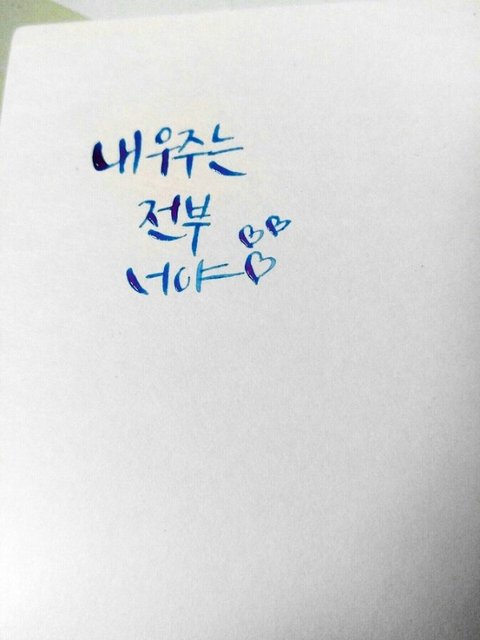 내 우주는
전부
너야